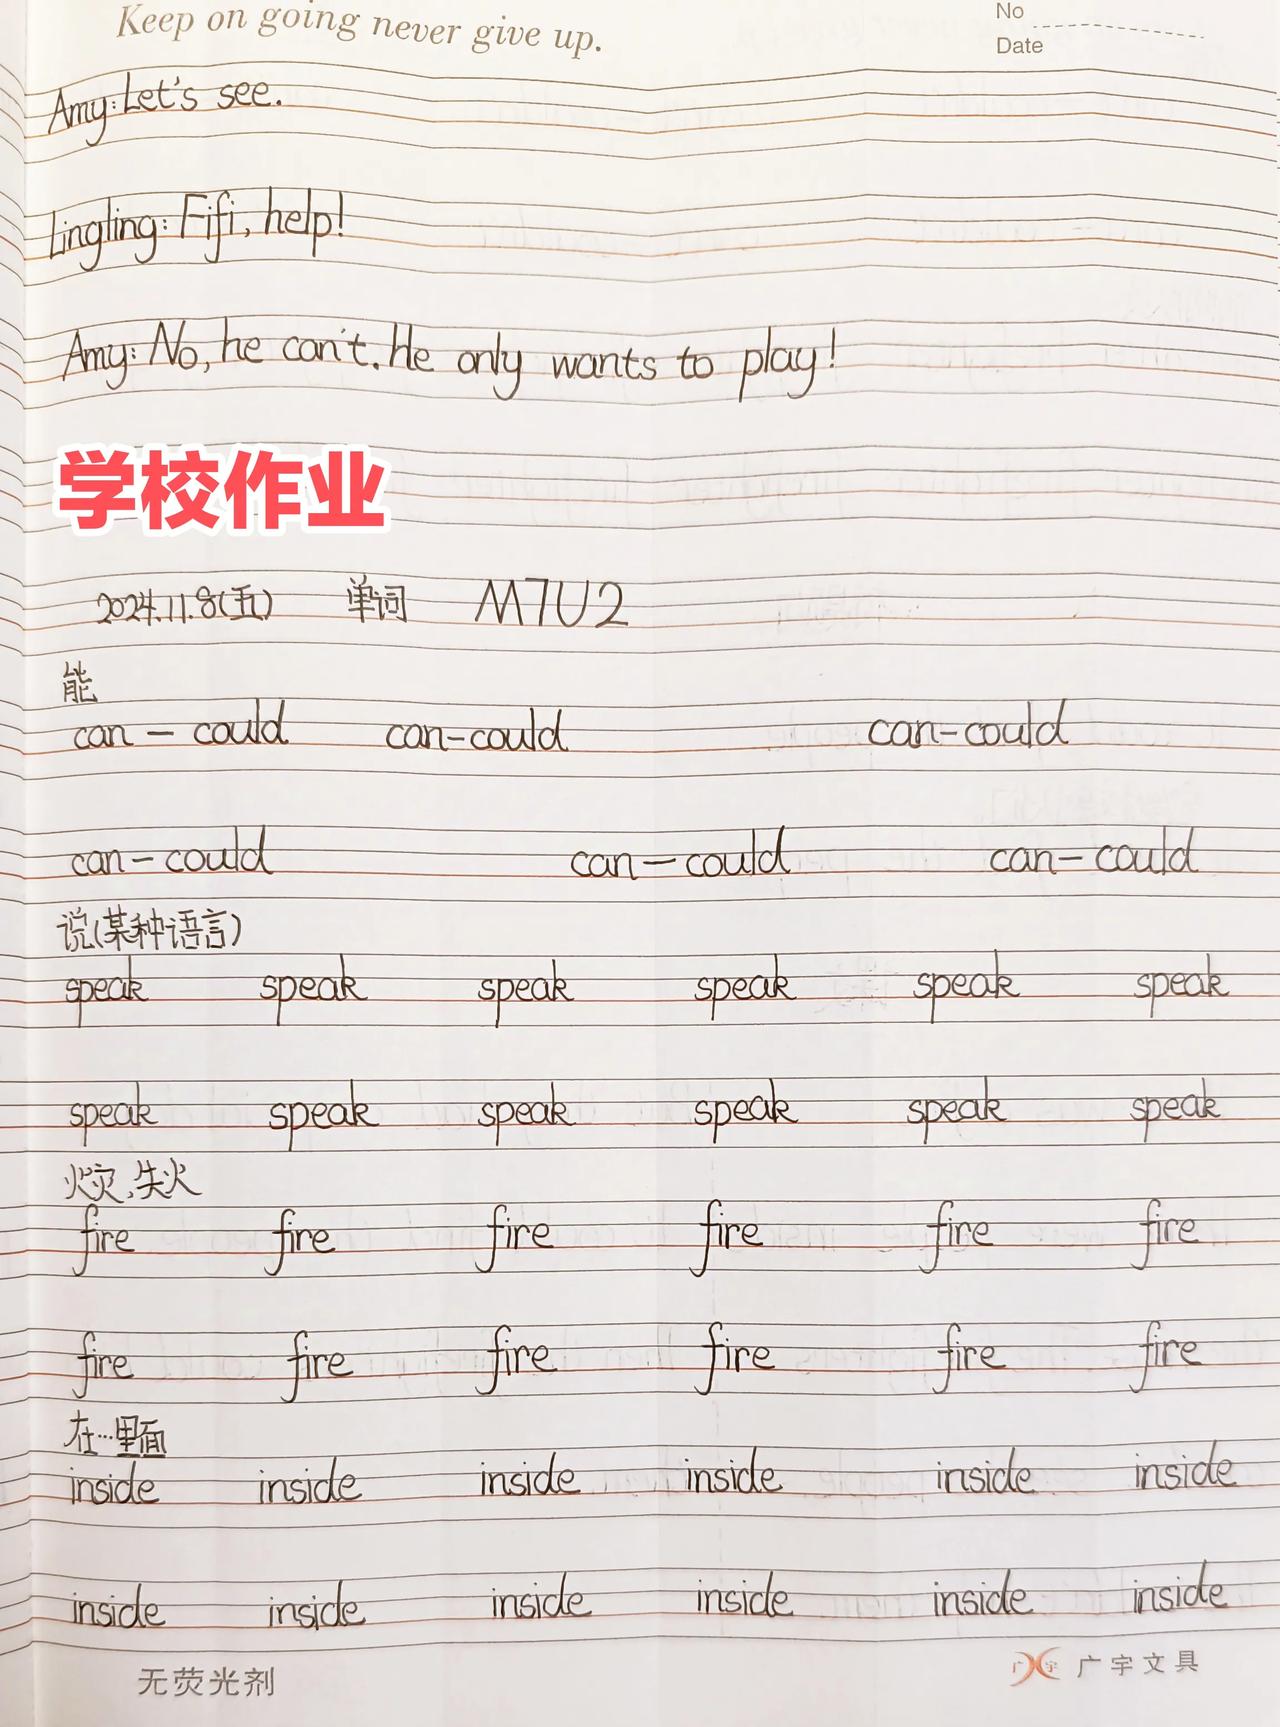 Keep on going never give up.
No
Date
Amy: Let's see.
Lingling: Fifi, help!
Amy: No, he can't. He only wants to play!
学校作业
2024.11.8(五) 单词 M7U2
能
can – could can-could can-could
can – could can – could can – could
说(某种语言)
speak speak speak speak speak speak
speak speak speak speak speak speak
火灾,失火
fire fire fire fire fire fire
fire fire fire fire fire fire
在…里面
inside inside inside inside inside inside
inside inside inside inside inside inside
无荧光剂
广宇 广宇文具